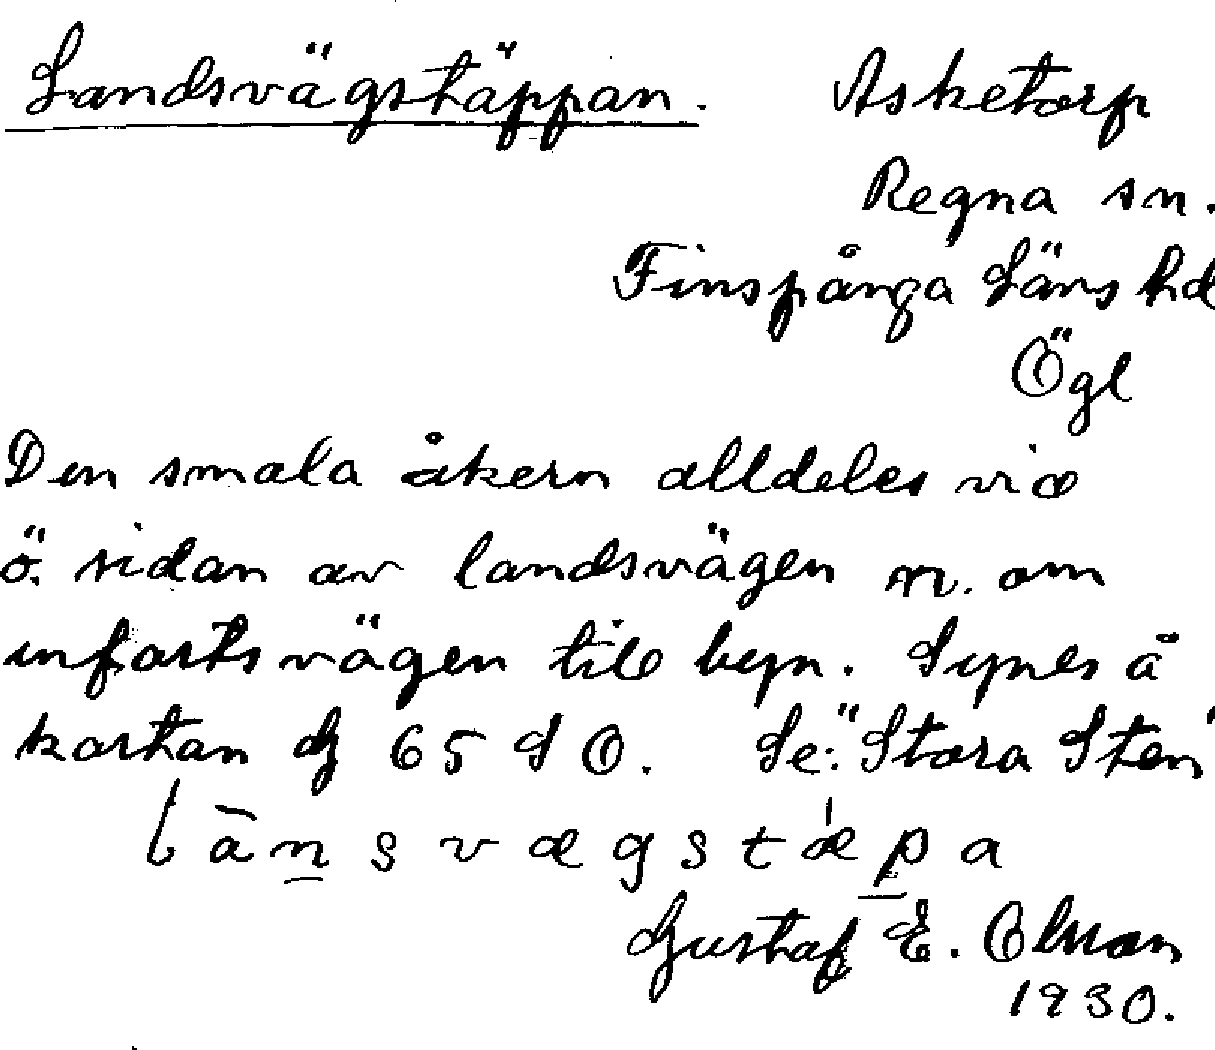 Landsvägstäppan. Asketorp
Regna sn.
Finspånga Läns hd
Ögl
Den smala åkern alldeles vid
ö. sidan av landsvägen n. om
infartsvägen till byn. Synes å
kartan G 65 S O. Se: "Stora Sten"
lānsvægstǽpa
Gustaf E. Olsson
1930.